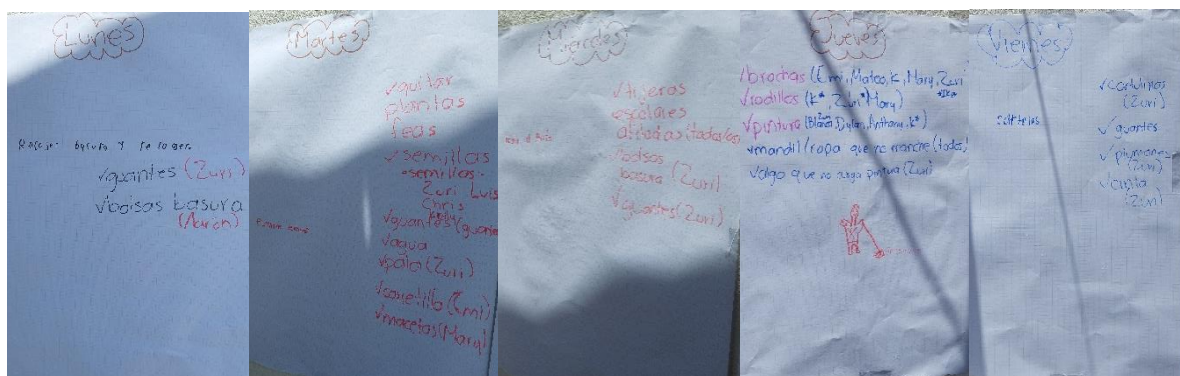 Lunes
basura y
✓guantes (Zuri)
✓bolsas basura
(March)
Martes
✓quitar
plantas
feas
✓semillas
semillas:
Zuri Luis
Chris
✓guantes
✓agua
✓pala (Zuri)
✓carretillo (Emi)
✓macetas (Mary)
Miercoles
✓tijeras
✓bolsas
basura (Zuri)
✓guantes (Zuri)
Jueves
✓brochas (Emi, Mateo, K, Mary, Zuri
✓rodillos (K*, Zuri* Mary)
✓pintura (Dylan, Anthony, K*)
✓mandil/ropa que no manche (todos)
✓algo que no tenga pintura (Zuri)
Viernes
✓cartulinas
(Zuri)
✓guantes
✓plumones
(Zuri)
✓cinta
(Zuri)